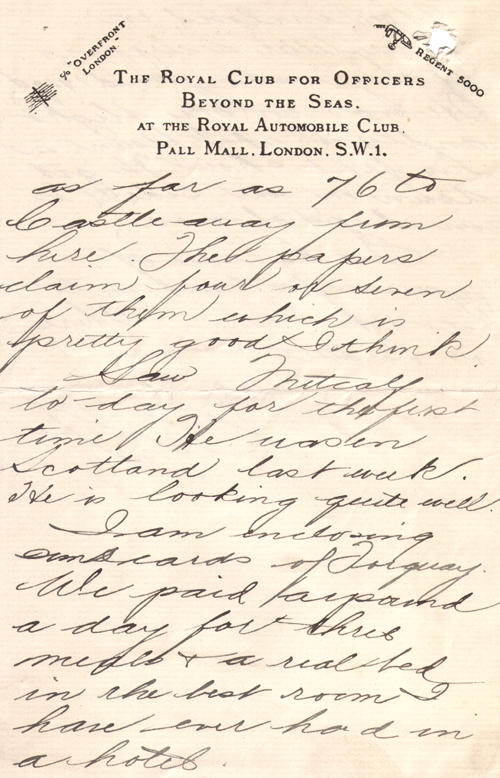 c/o "OVERFRONT
LONDON."
REGENT 5000
THE ROYAL CLUB FOR OFFICERS
BEYOND THE SEAS.
AT THE ROYAL AUTOMOBILE CLUB.
PALL MALL, LONDON, S.W.1.
as far as 76 to
Castle away from
here. The papers
claim four or seven
of them which is
pretty good I think.
Saw Metcalf
to-day for the first
time. He was in
Scotland last week.
He is looking quite well.
I am enclosing
some cards of Torquay.
We paid a pound
a day for three
meals + a real bed
in the best room I
have ever had in
a hotel.